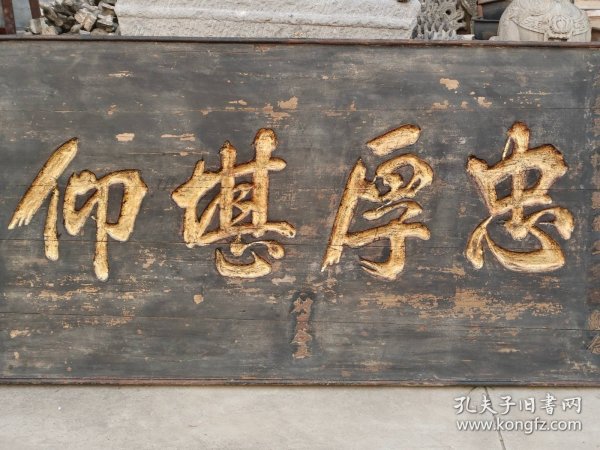 忠厚堪仰
孔夫子旧书网
www.kongfz.com